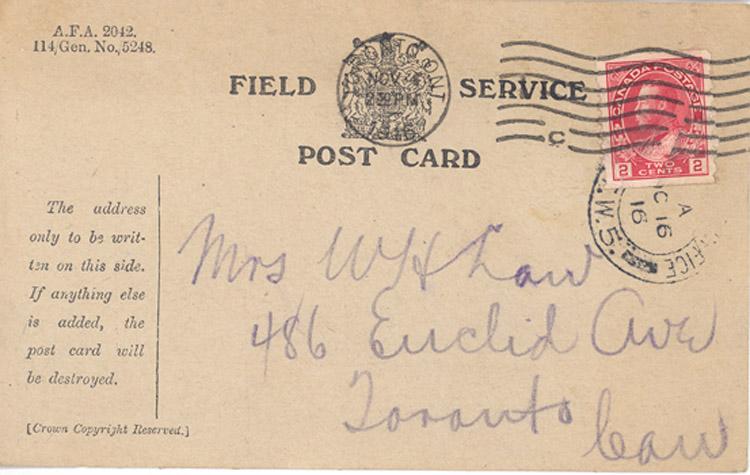 A.F.A. 2042.
114/Gen. No./5248.
TORONTO, ONT
NOV 4
PM
1916
FIELD SERVICE
POST CARD
C
CANADA POSTAGE
2 TWO CENTS 2
A
OC 16
16
W.5.
The address
only to be writ-
ten on this side.
If anything else
is added, the
post card will
be destroyed.
[Crown Copyright Reserved.]
Mrs W H Law
486 Euclid Ave
Toronto
Can